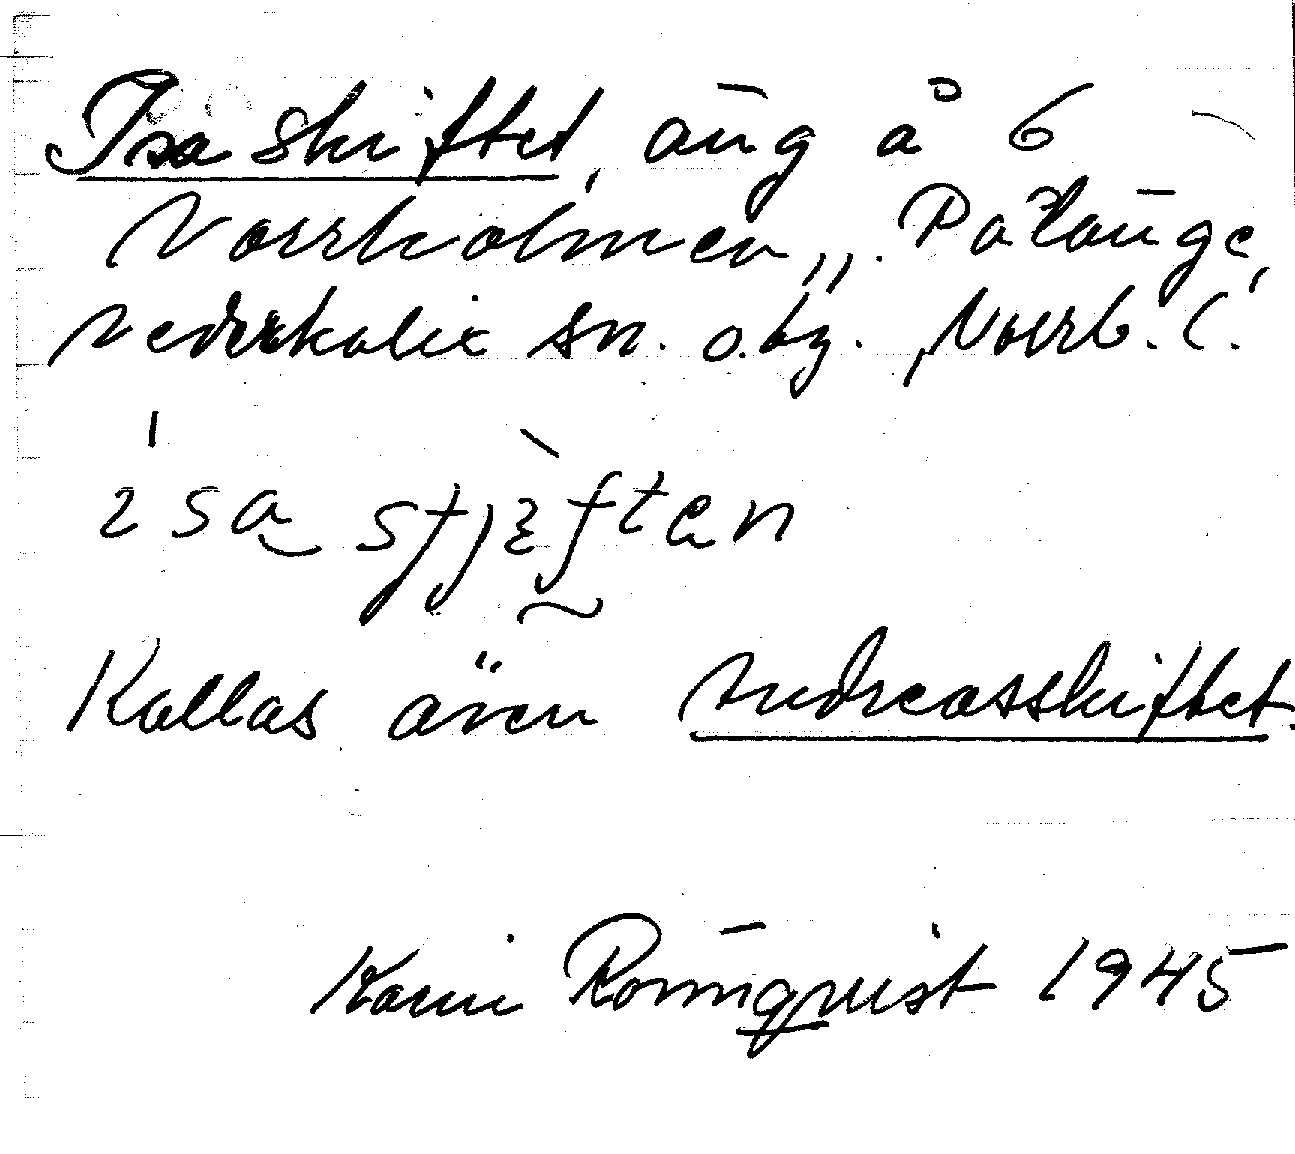 Isaskiftet, äng å 6
Norrholmen, Pålänge,
Nederkalix sn. o. hg., Norrb. l.
Kallas även Andreasskiftet.
Karin Rönnqvist 1945